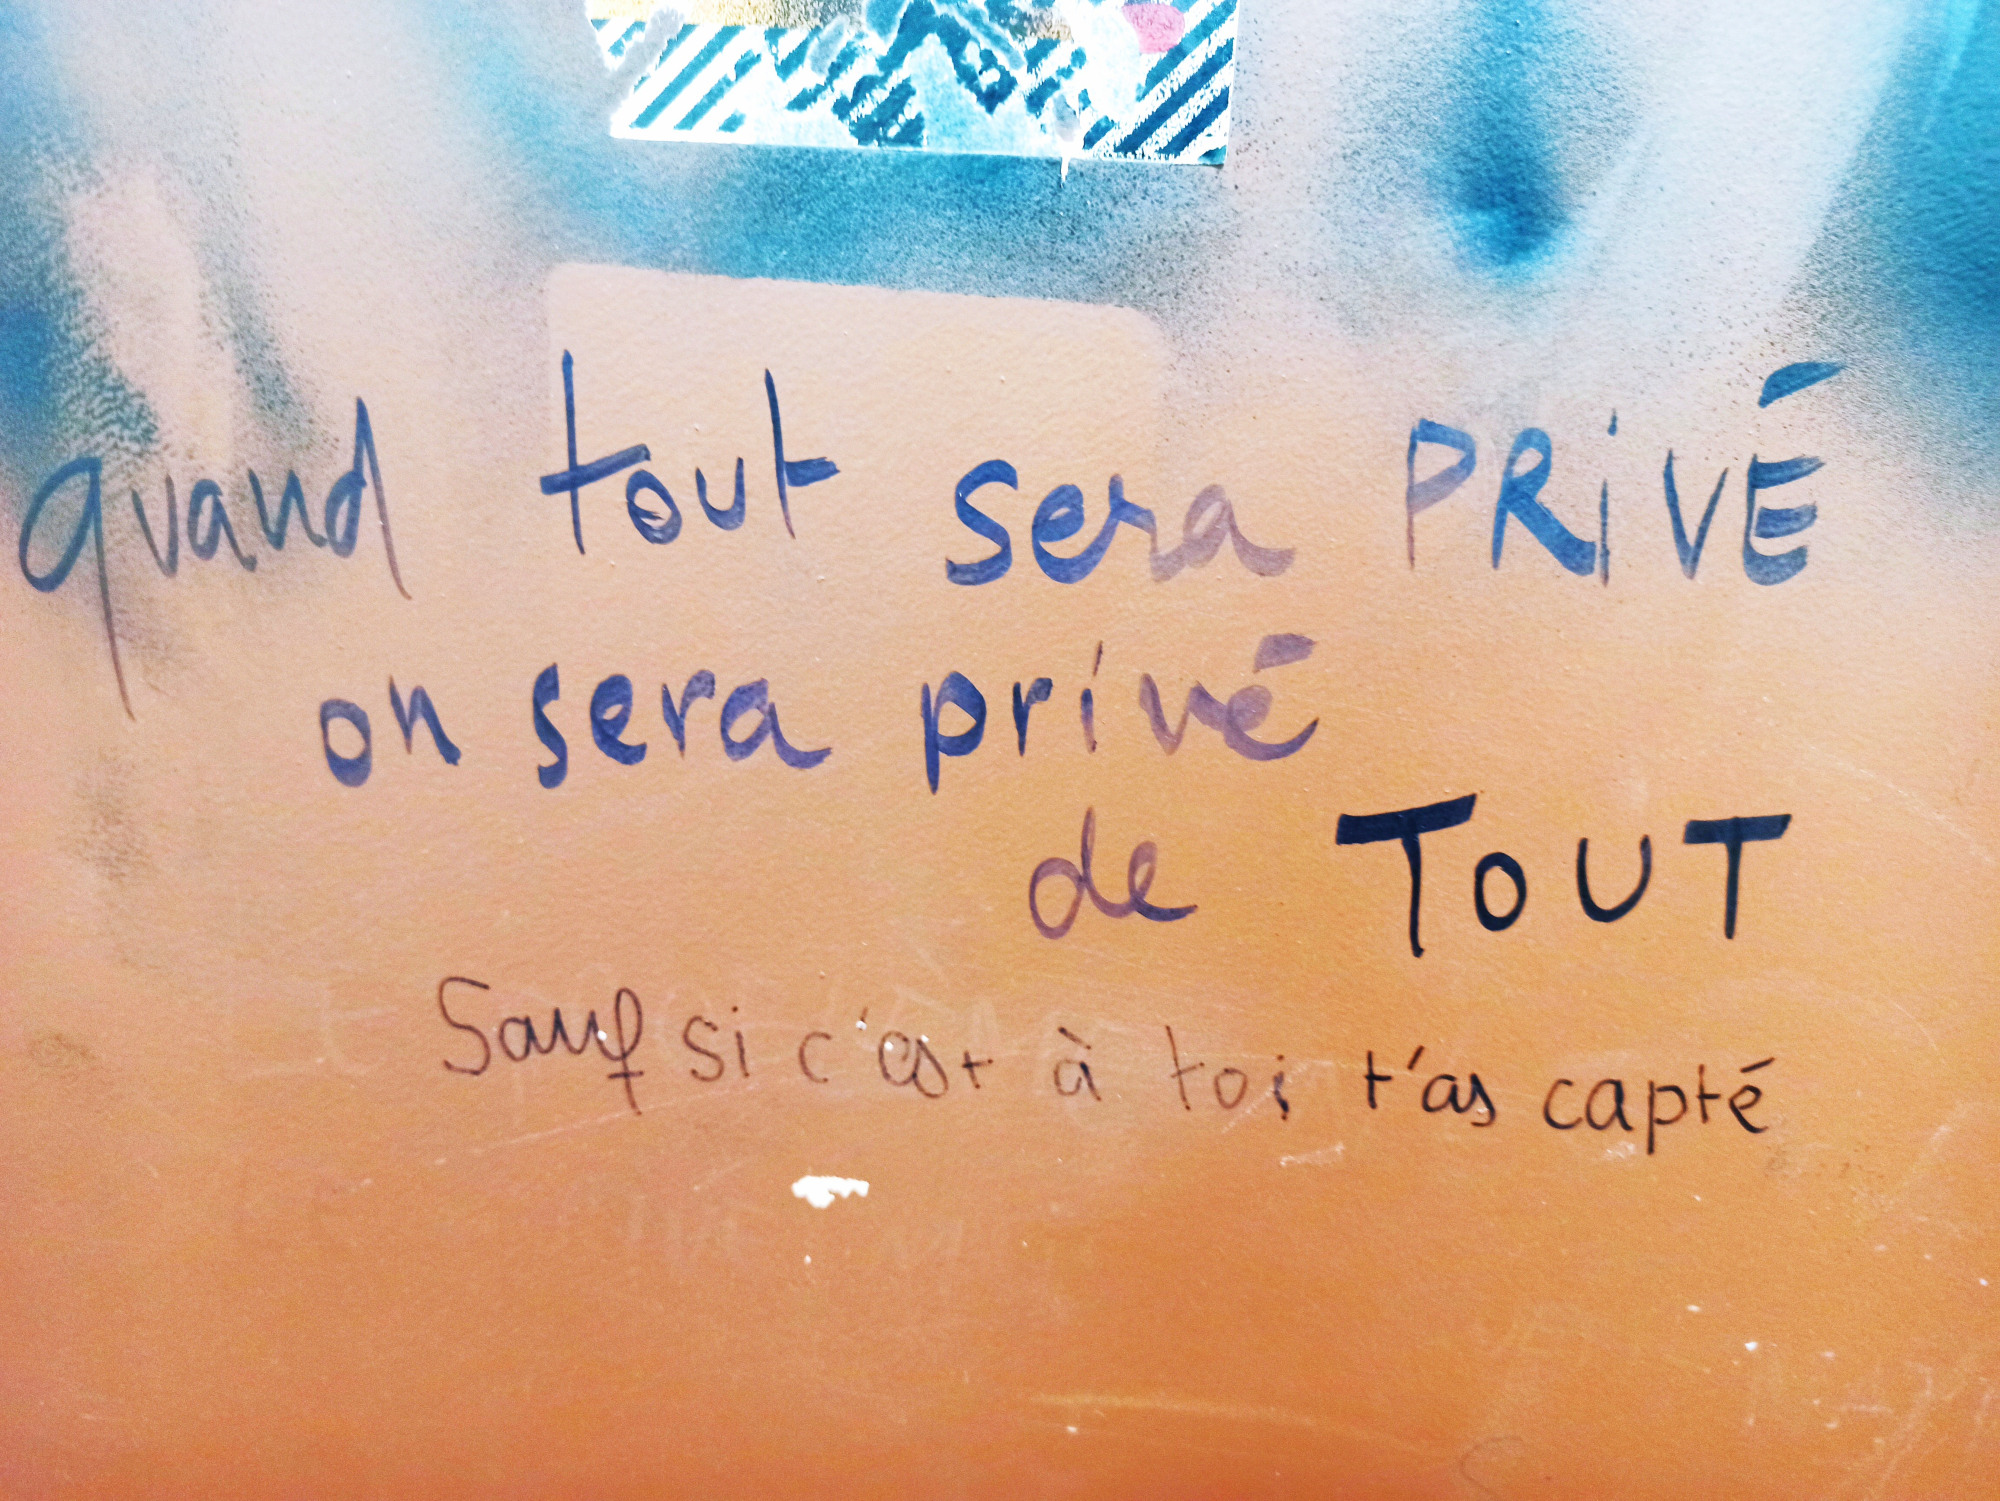 quand tout sera PRiVÉ
on sera privé
de ToUT
Sauf si c'est à toi t'as capté